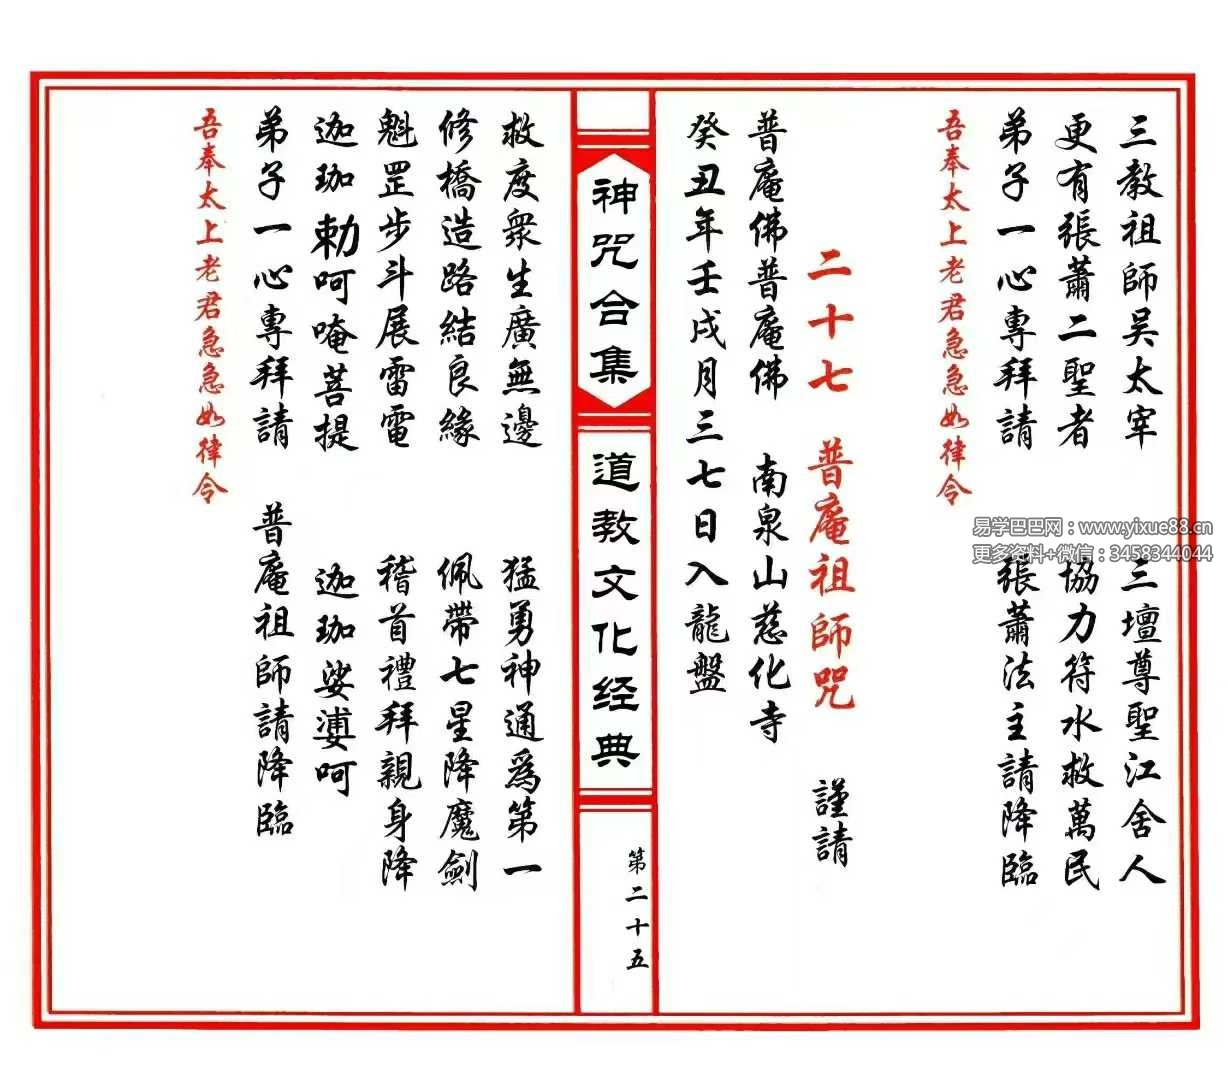 三教祖師吳太宰　三壇尊聖江舍人
更有張蕭二聖者　協力符水救萬民
弟子一心專拜請　張蕭法主請降臨
吾奉太上老君急急如律令
二十七　普庵祖師咒　謹請
普庵佛普庵佛　南泉山慈化寺
癸丑年壬戌月三七日入龍盤
神咒合集
道教文化经典
第二十五
救度眾生廣無邊　猛勇神通為第一
修橋造路結良緣　佩帶七星降魔劍
魁罡步斗展雷電　稽首禮拜親身降
迦珈勅呵唵菩提　迦珈娑婆呵
弟子一心專拜請　普庵祖師請降臨
吾奉太上老君急急如律令
易学巴巴网：www.yixue88.cn
更多资料+微信：3458344044